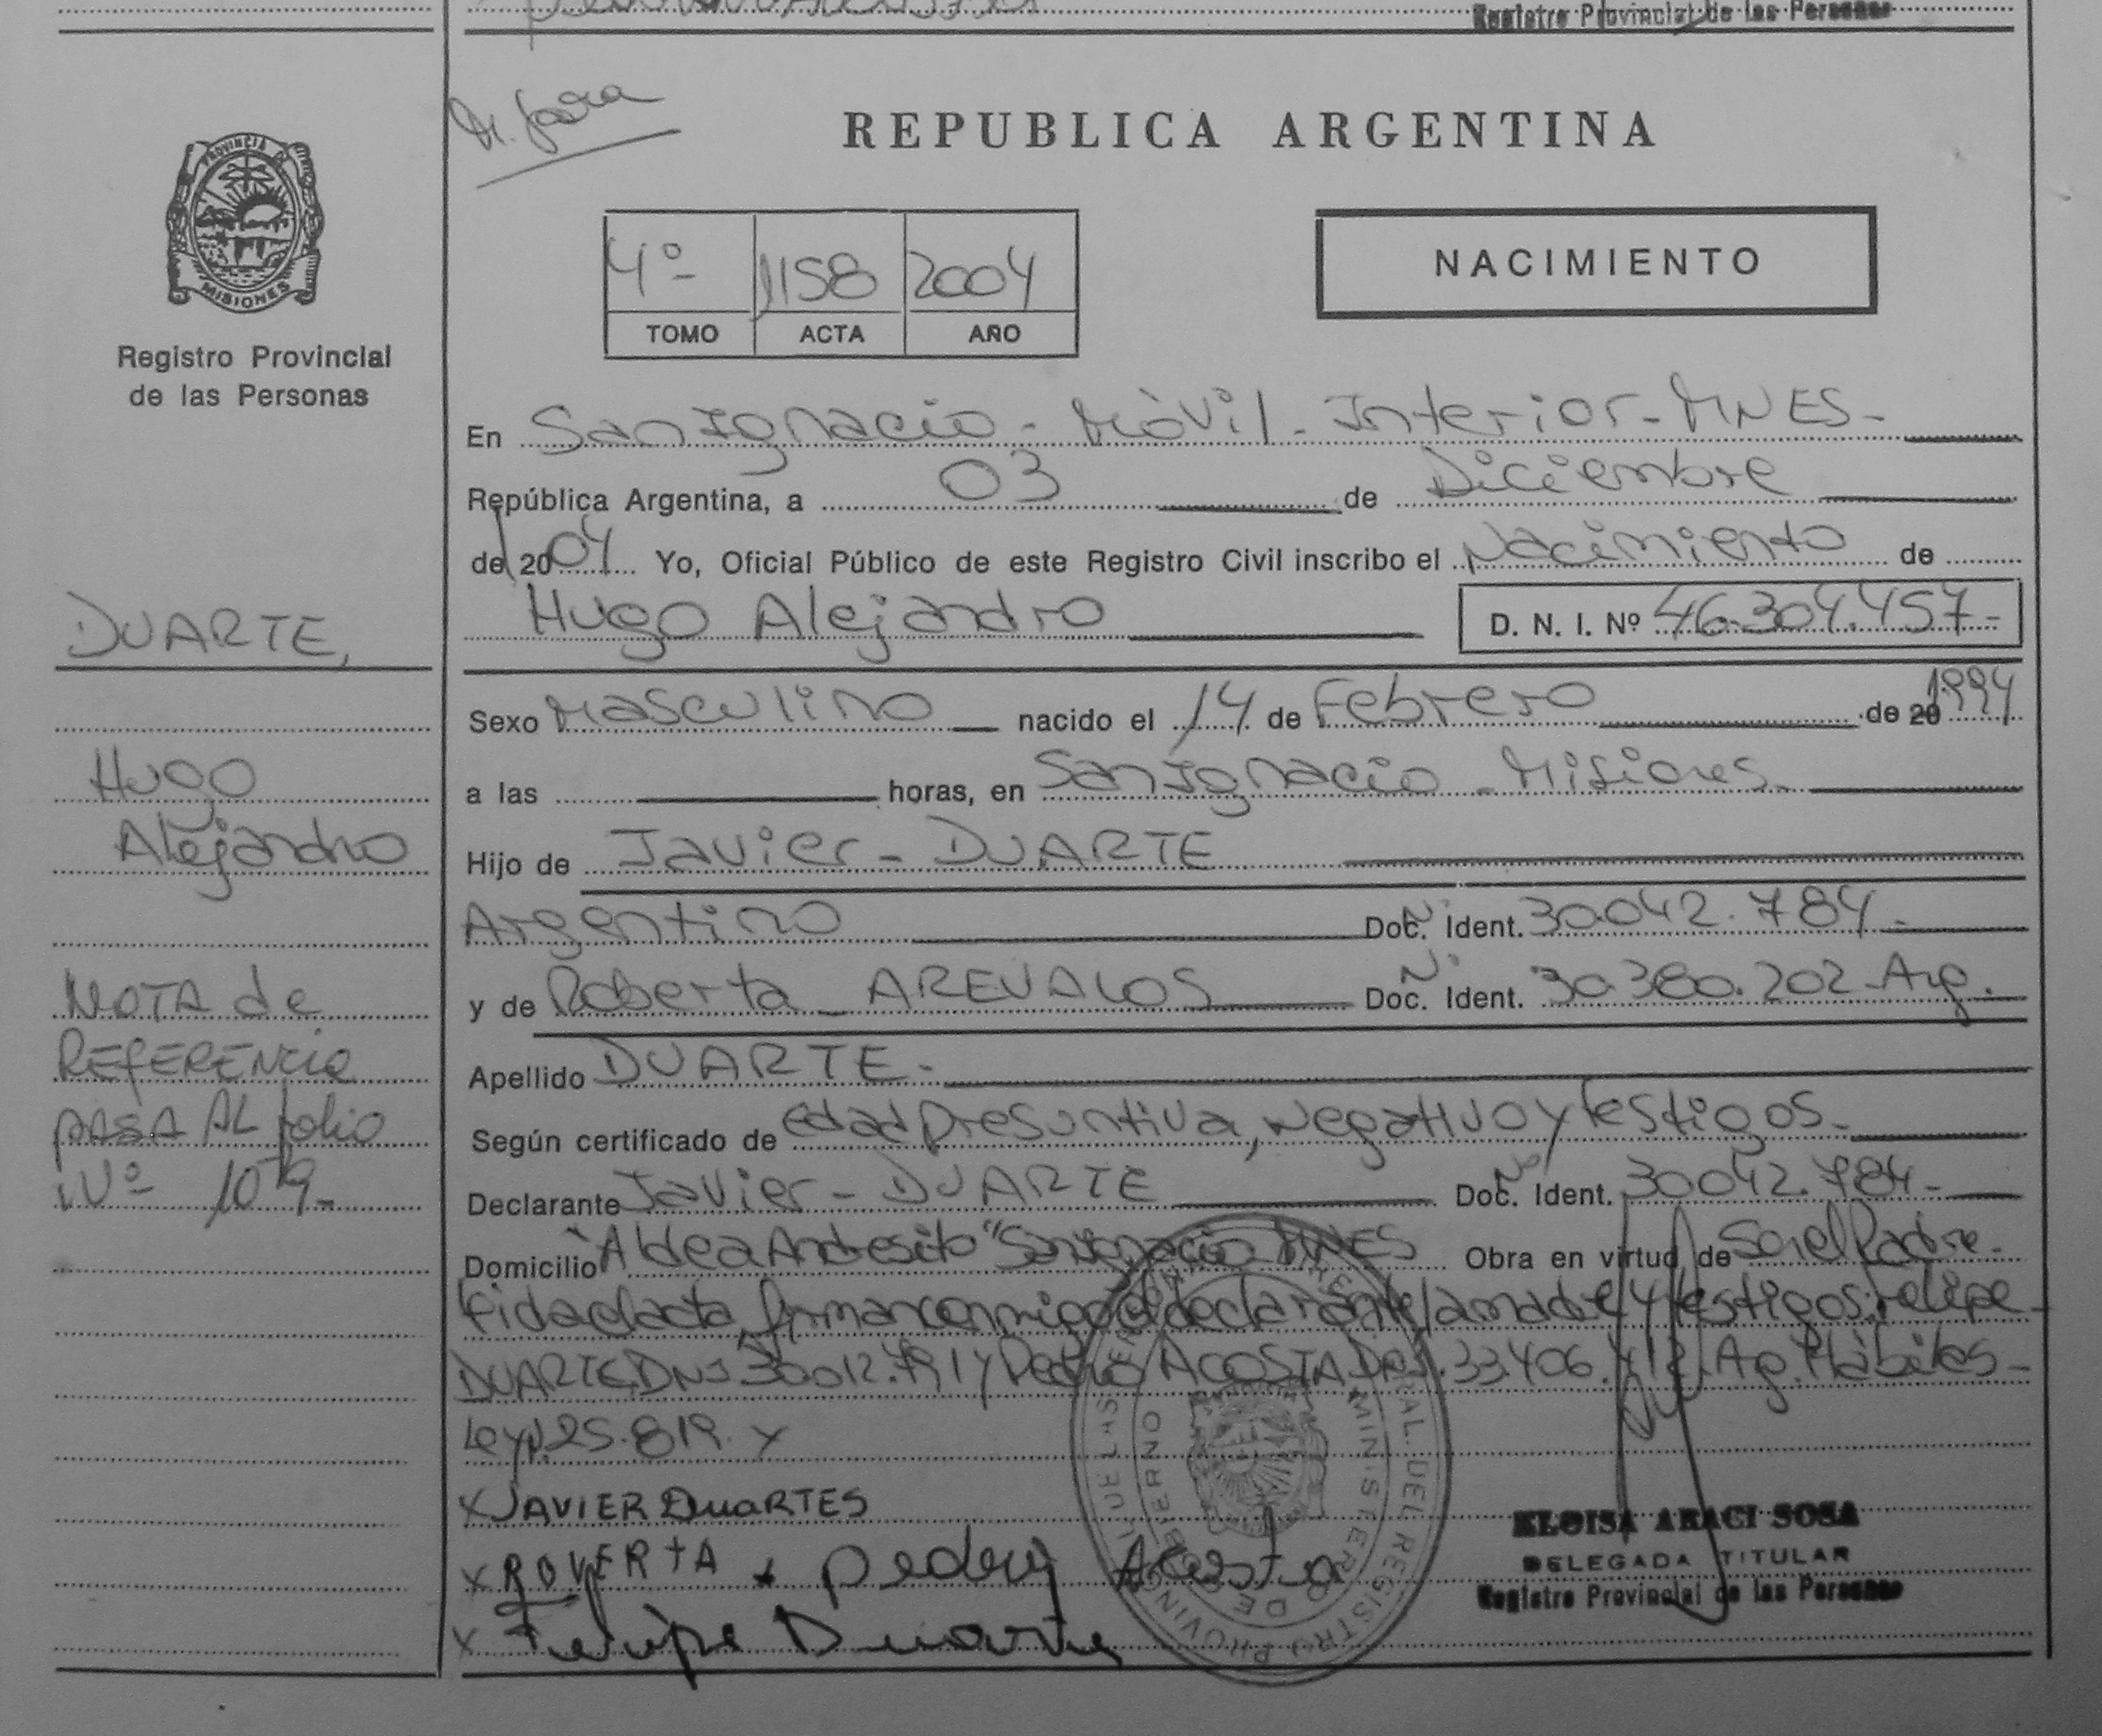 Registro Provincial de las Personas
PROVINCIA DE
MISIONES
Registro Provincial
de las Personas
REPUBLICA ARGENTINA
4º 1158 2004
TOMO ACTA AÑO
NACIMIENTO
En San Ignacio - Móvil - Interior - MNES -
República Argentina, a 03 de Diciembre
de 2004 Yo, Oficial Público de este Registro Civil inscribo el Nacimiento de
Hugo Alejandro D. N. I. Nº 46.304.457-
DUARTE,
Sexo Masculino nacido el 14 de Febrero de 20 1994
Hugo
a las horas, en San Ignacio - Misiones -
Alejandro
Hijo de Javier - DUARTE
Argentino Doc. Nº Ident. 30.042.784 -
NOTA de
y de Roberta - AREVALOS Doc. Nº Ident. 30.380.202 - Arg.
REFERENCIA
Apellido DUARTE -
PASA AL folio
Según certificado de edad presuntiva, Negativo y testigos -
Nº 109 -
Declarante Javier - DUARTE Doc. Nº Ident. 30.042.784 -
Domicilio "Aldea Andresito" San Ignacio MNES Obra en virtud de Ser el Padre -
Leída el acta, firman conmigo el declarante, la madre y testigos: Felipe
DUARTE, DNI 30.012.791 y Pedro ACOSTA DNI. 33.406. Arg. Hábiles -
Ley Nº 25.819. y
x JAVIER DuARTES
x ROVERTA x Pedro Acosta
x Felipe Duarte
ELOISA ARACI SOSA
DELEGADA TITULAR
Registro Provincial de las Personas